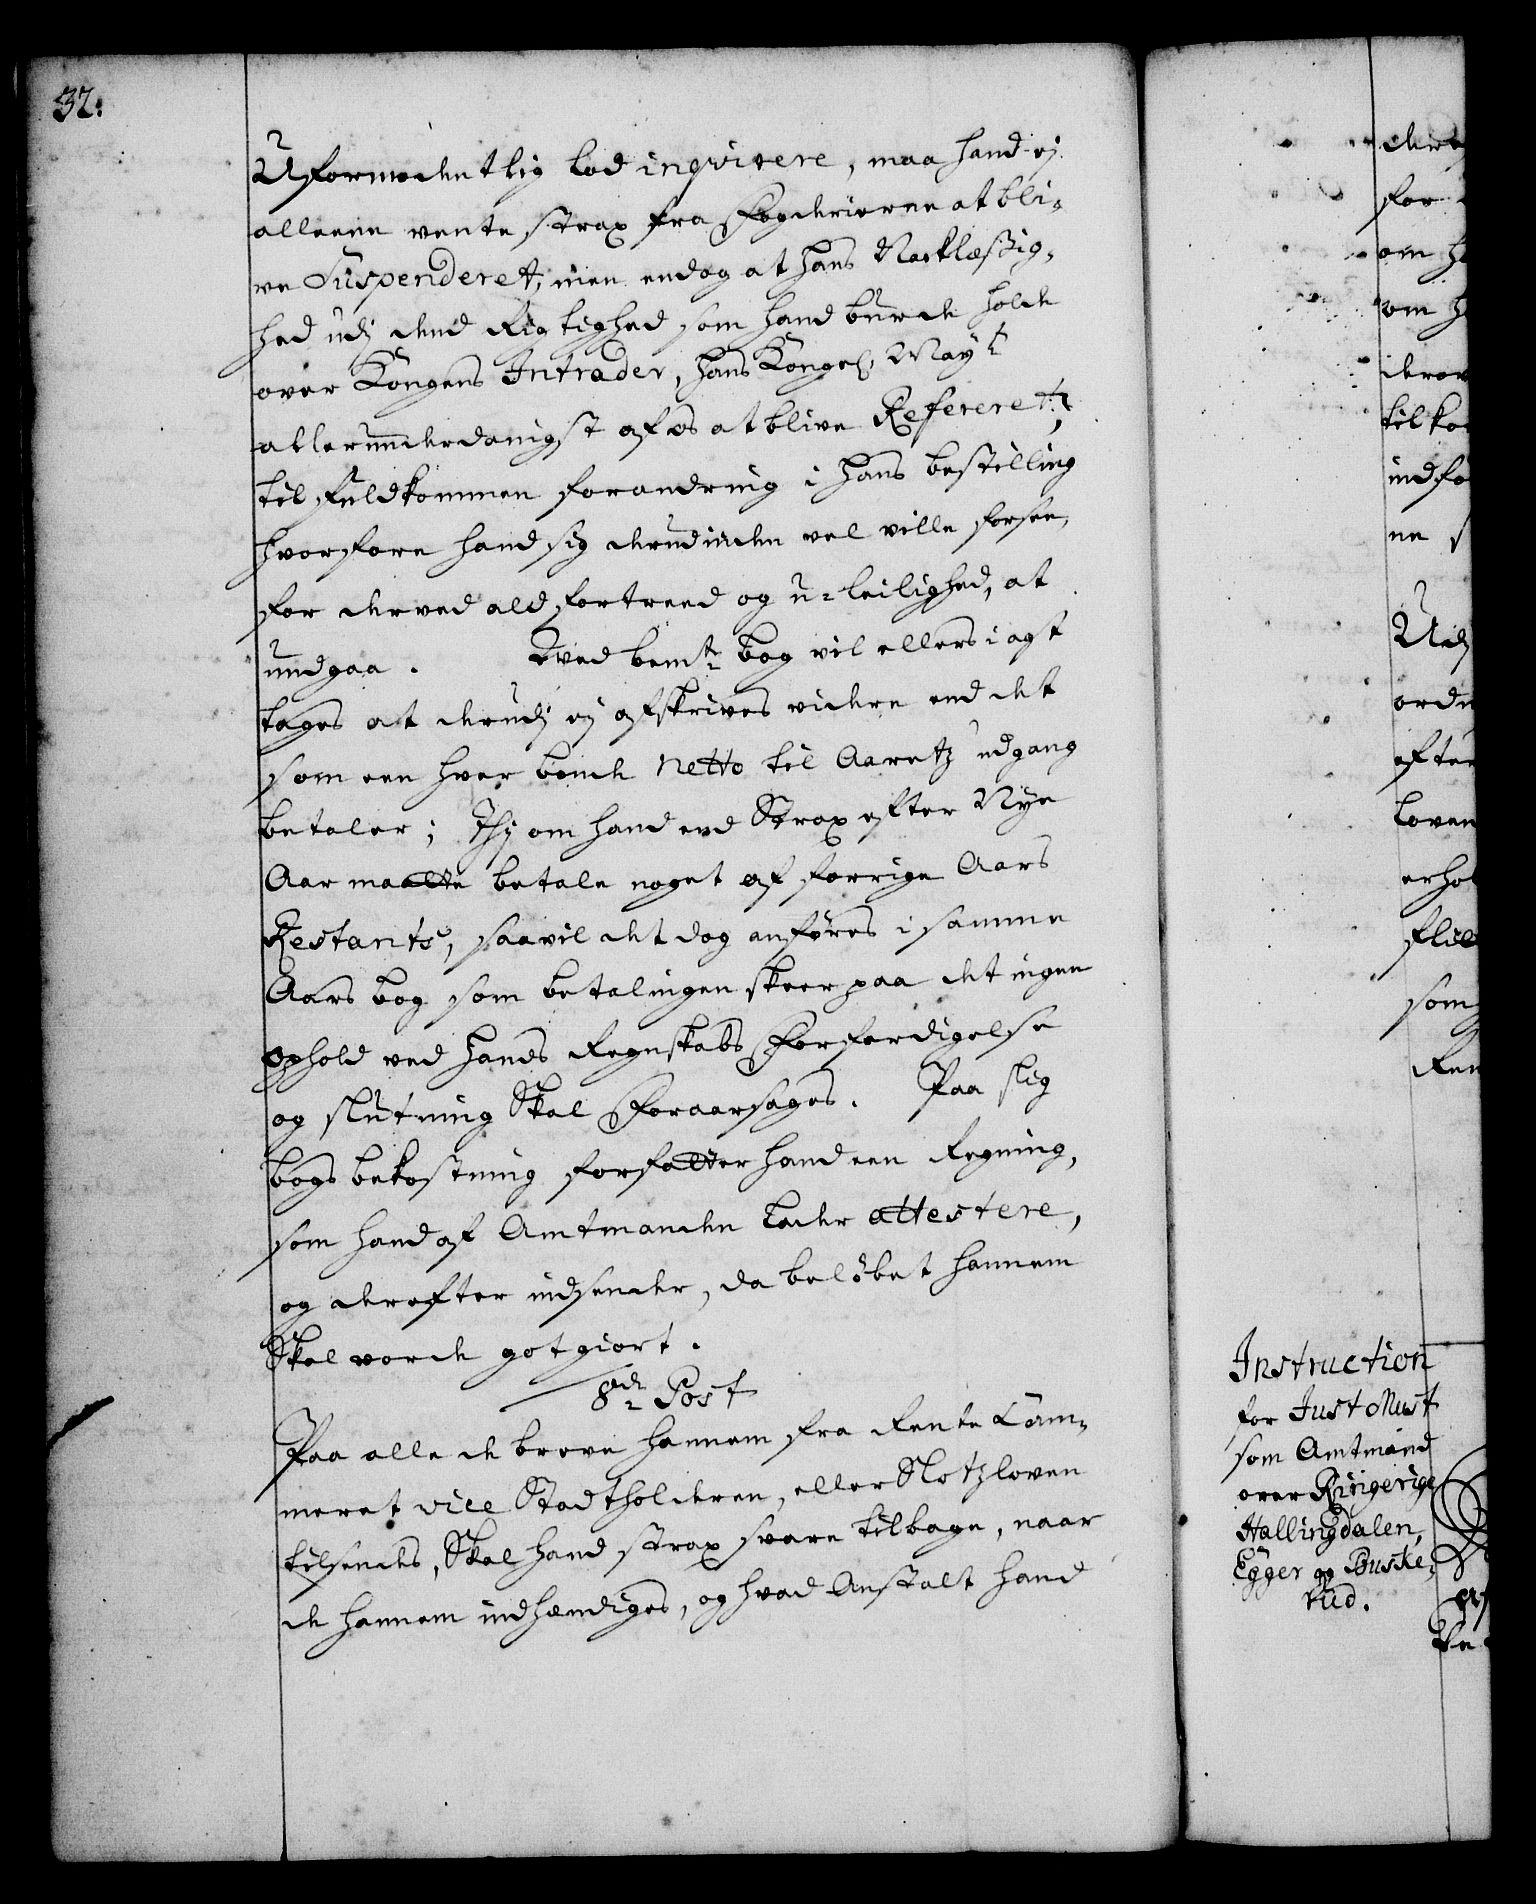 32.
Uformodentlig lod inqvirere, maa hand ej
alleene vente strax fra Fogderierne at bli-
ve Suspenderet, men endog at hans Nachlæssig-
hed udj dend Rigtighed som hand burde holde
over Kongens Intrader, hans Kongel. May.t
allerunderdanigst af os at blive Refereret,
til fuldkommen forandring i hans bestilling
hvorfore hand sig derudinden vel ville forsee,
for derved ald fortreed og u-leilighed, at
undgaa. Wed bem.te bog vil ellers i agt
tages at derudj ej afskrives videre end det
som een hver bonde Netto til Aaretz udgang
betaler; Thj om hand end Strax efter Nye
Aar maatte betale noget af forrige Aars
Restants, saa vil det dog anføres i samme
Aars bog som betalingen skeer paa det ingen
ophold ved hands Regnskabs Forferdigelse
og slutning Skal Foraarsages. Paa slig
bogs bekostning forfatter hand een Regning,
som hand af Amtmanden lader attestere,
og derefter indsender, da beløbet hannem
Skal vorde gotgiort.
8de Post
Paa alle de breve hannem fra Rente Cam-
meret vice Stadtholderen, eller Slotzloven
tilsendes, Skal hand strax svare tilbage, naar
de hannem indhændiges, og hvad Anstalt hand
for
om
om
til
indfo
ne
Udj
ord
efter
loven
erhol
som
Ren
Instruction
for Just Must
som Amtmand
over Ringerige
Hallingdalen,
Egger og Buske-
rud.